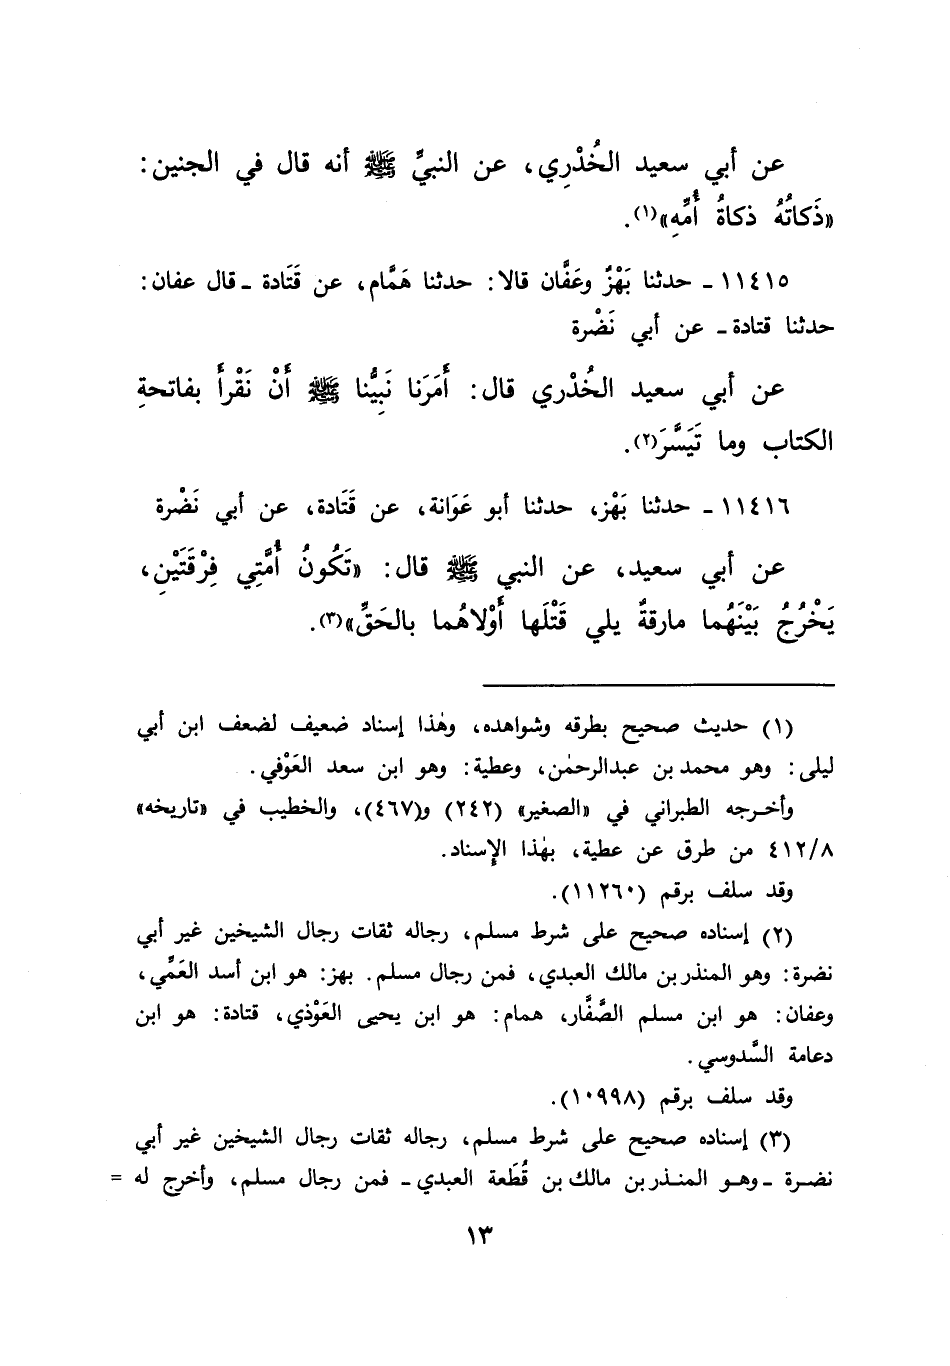 عن أبي سعيد الخُدْرِي، عن النبيِّ ﷺ أنه قال في الجنين:
«ذَكاتُهُ ذكاةُ أُمِّهِ»(١).
١١٤١٥ ـ حدثنا بَهْزٌ وعَفَّان قالا: حدثنا هَمَّام، عن قَتَادة ـ قال عفان:
حدثنا قتادة ـ عن أبي نَضْرة
عن أبي سعيد الخُدْري قال: أَمَرَنا نَبِيُّنا ﷺ أَنْ نَقْرأَ بفاتحةِ
الكتاب وما تَيَسَّرَ(٢).
١١٤١٦ ـ حدثنا بَهْز، حدثنا أبو عَوَانة، عن قَتَادة، عن أبي نَضْرة
عن أبي سعيد، عن النبي ﷺ قال: «تَكُونُ أُمَّتِي فِرْقَتَيْنِ،
يَخْرُجُ بَيْنَهُما مارقةٌ يلي قَتْلَها أَوْلاهُما بالحَقِّ»(٣).
(١) حديث صحيح بطرقه وشواهده، وهٰذا إسناد ضعيف لضعف ابن أبي
ليلى: وهو محمد بن عبدالرحمٰن، وعطية: وهو ابن سعد العَوْفي.
وأخرجه الطبراني في «الصغير» (٢٤٢) و(٤٦٧)، والخطيب في «تاريخه»
٤١٢/٨ من طرق عن عطية، بهٰذا الإسناد.
وقد سلف برقم (١١٢٦٠).
(٢) إسناده صحيح على شرط مسلم، رجاله ثقات رجال الشيخين غير أبي
نضرة: وهو المنذر بن مالك العبدي، فمن رجال مسلم. بهز: هو ابن أسد العَمِّي،
وعفان: هو ابن مسلم الصَّفَّار، همام: هو ابن يحيى العَوْذي، قتادة: هو ابن
دعامة السَّدوسي.
وقد سلف برقم (١٠٩٩٨).
(٣) إسناده صحيح على شرط مسلم، رجاله ثقات رجال الشيخين غير أبي
نضرة ـ وهو المنذر بن مالك بن قُطَعة العبدي ـ فمن رجال مسلم، وأخرج له =
١٣